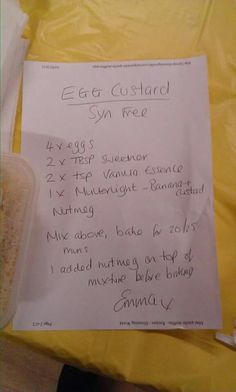 EGG Custard
Syn Free
4 x eggs
2 x TBSP Sweetner
2 x tsp Vanilla Essence
1 x Mullerlight - Banana +
custard
Nutmeg
Mix above, bake for 20/25
mins
I added nutmeg on top of
mixture before baking
Emma